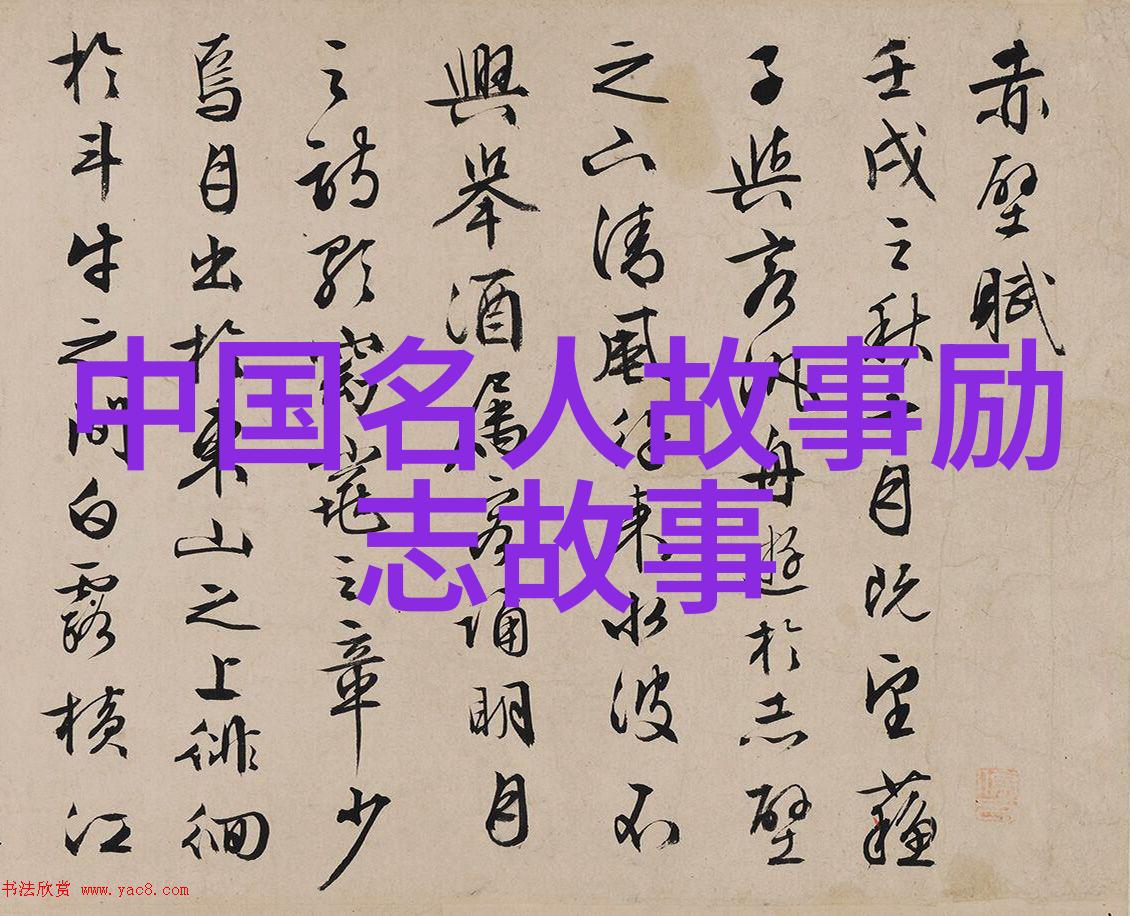 赤壁賦
壬戌之秋七月既望蘇
子與客汎舟遊於赤壁
之下清風徐來水波不
興舉酒屬客誦明月
之詩歌窈窕之章少
焉月出於東山之上徘徊
於斗牛之間白露橫江
中国名人故事励
志故事
书法欣赏 www.yac8.com